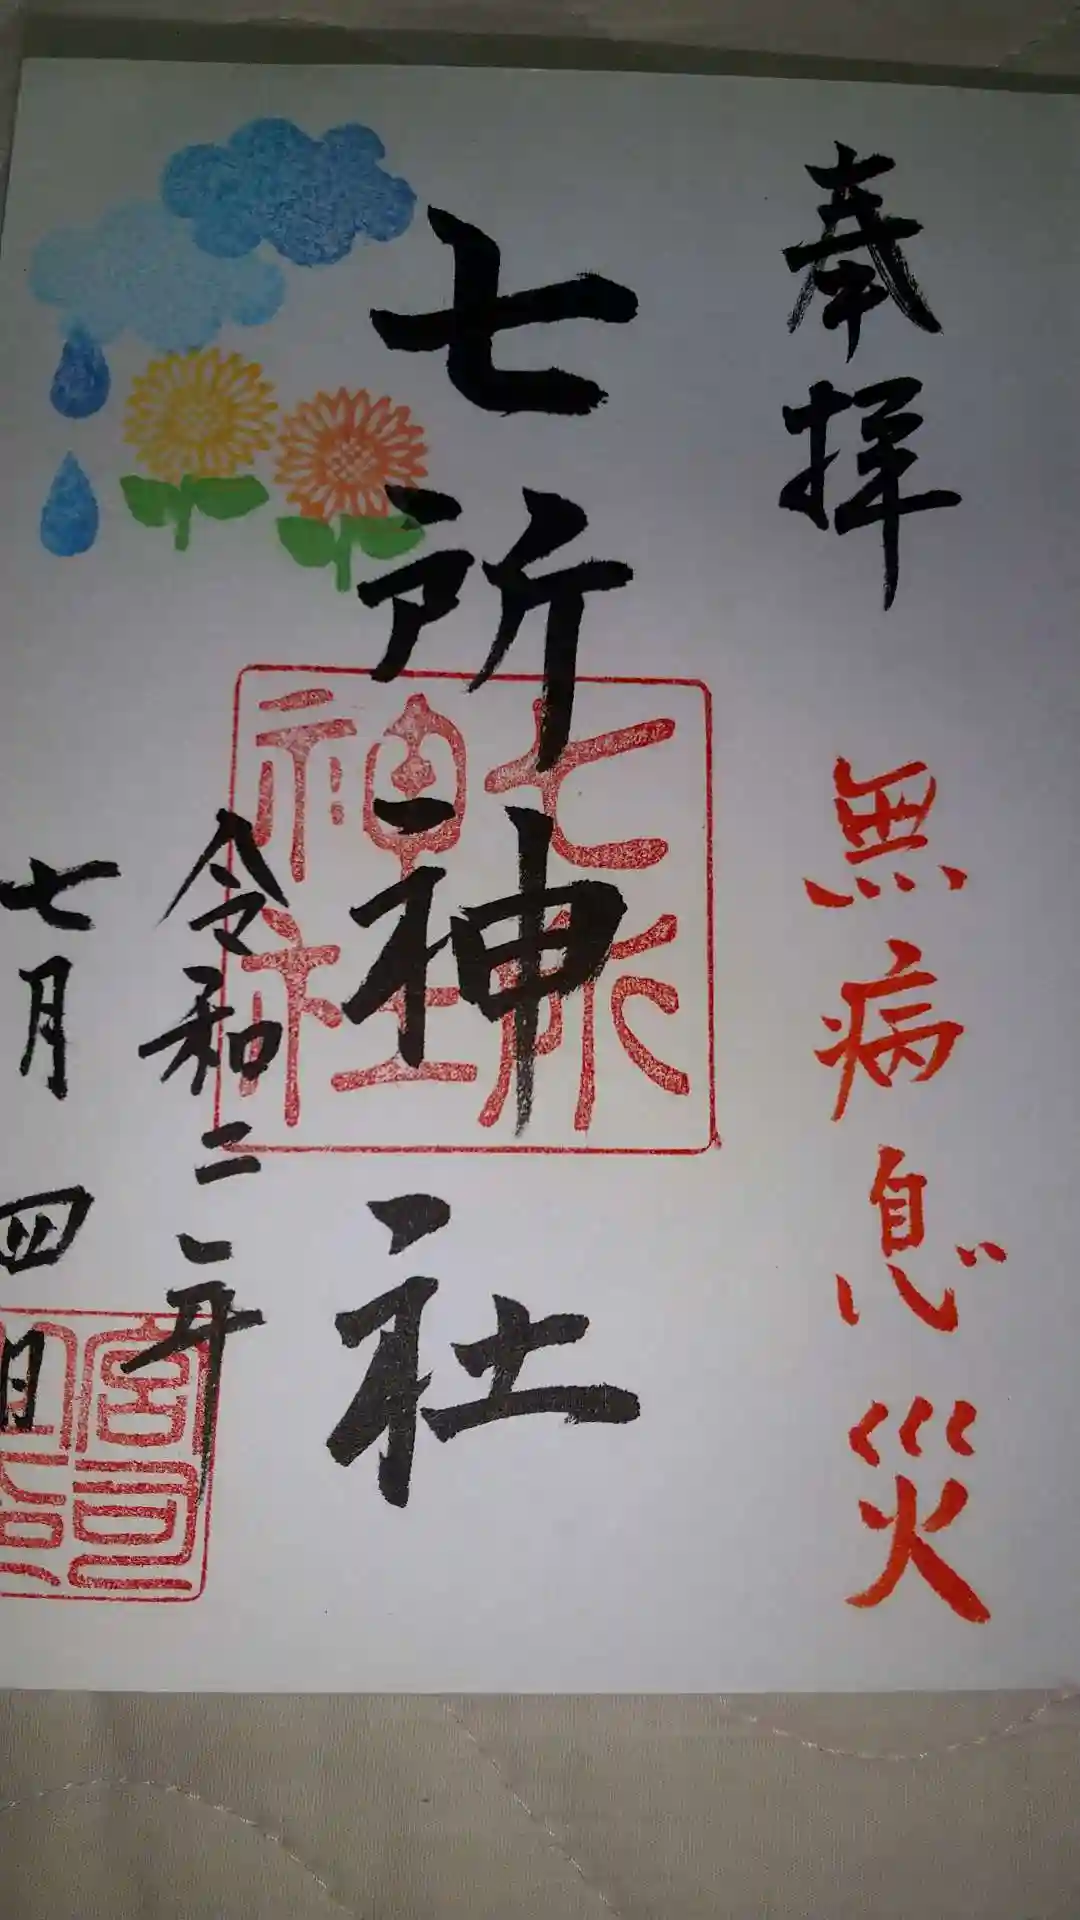 奉拝
無病息災
七所神社
七所神社
令和二年
七月四日
宮司